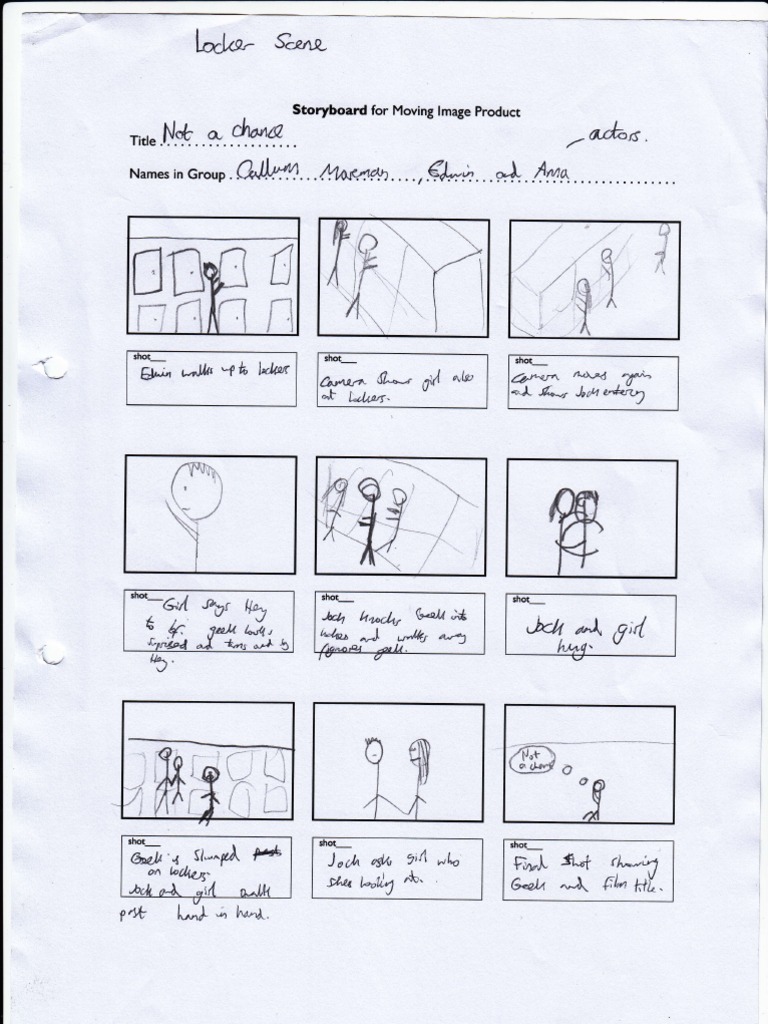 Locker Scene
Storyboard for Moving Image Product
Title Not a chance
actors.
Names in Group Callum , Edwin and Anna
shot
Edwin walks up to locker
shot
Camera shows girl also
at lockers.
shot
Camera moves again
and shows Jock entering
shot
Girl says Hey
to geek looks
surprised and turns and
Hey.
shot
Jock knocks Geek into
locker and walks away
ignores geek.
shot
Jock and girl
hug.
shot
Geek is slumped
on lockers.
Jock and girl walk
past hand in hand.
shot
Jock asks girl who
shes looking at.
Not
a chance
shot
Final shot showing
Geek and film title.